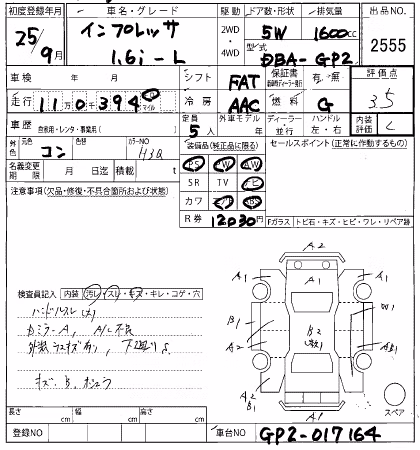 初度登録年月 車名・グレード 駆動 ドア数・形状 排気量 出品NO.
25年9月 インプレッサ 1.6i-L 2WD 4WD 5W 1600cc 2555
型式 DBA-GP2
車検 年 月 シフト FAT 保証書 有・無 評価点 3.5
走行 110千394 km マイル 冷房 AAC 燃料 G
車歴 自家用・レンタ・事業用( ) 定員 5人 外車モデル 年 ディーラー・並行 ハンドル 左・右 内装評価 C
外色 元色 コン カラーNO H3Q 装備品(純正品に限る) セールスポイント(正常に作動するもの)
名義変更期限 月 日迄 積載 t PS PW AW
注意事項(欠品・修復・不具合箇所および状態) SR TV ナビ
カワ エアB ABS
R券 12030円 Fガラス トビ石・キズ・ヒビ・ワレ・リペア跡
A2
A1 A1 A1
B1 B2 W1
A2 AB1
A2 B1 A1
検査員記入 内装 汚レ・スレ・キズ・キレ・コゲ・穴
ハンドルスレ(大)
DミラーA, A/C不良
キズ, B,
スペア
長さ cm 幅 cm 高さ cm
登録NO 車台NO GP2-017164